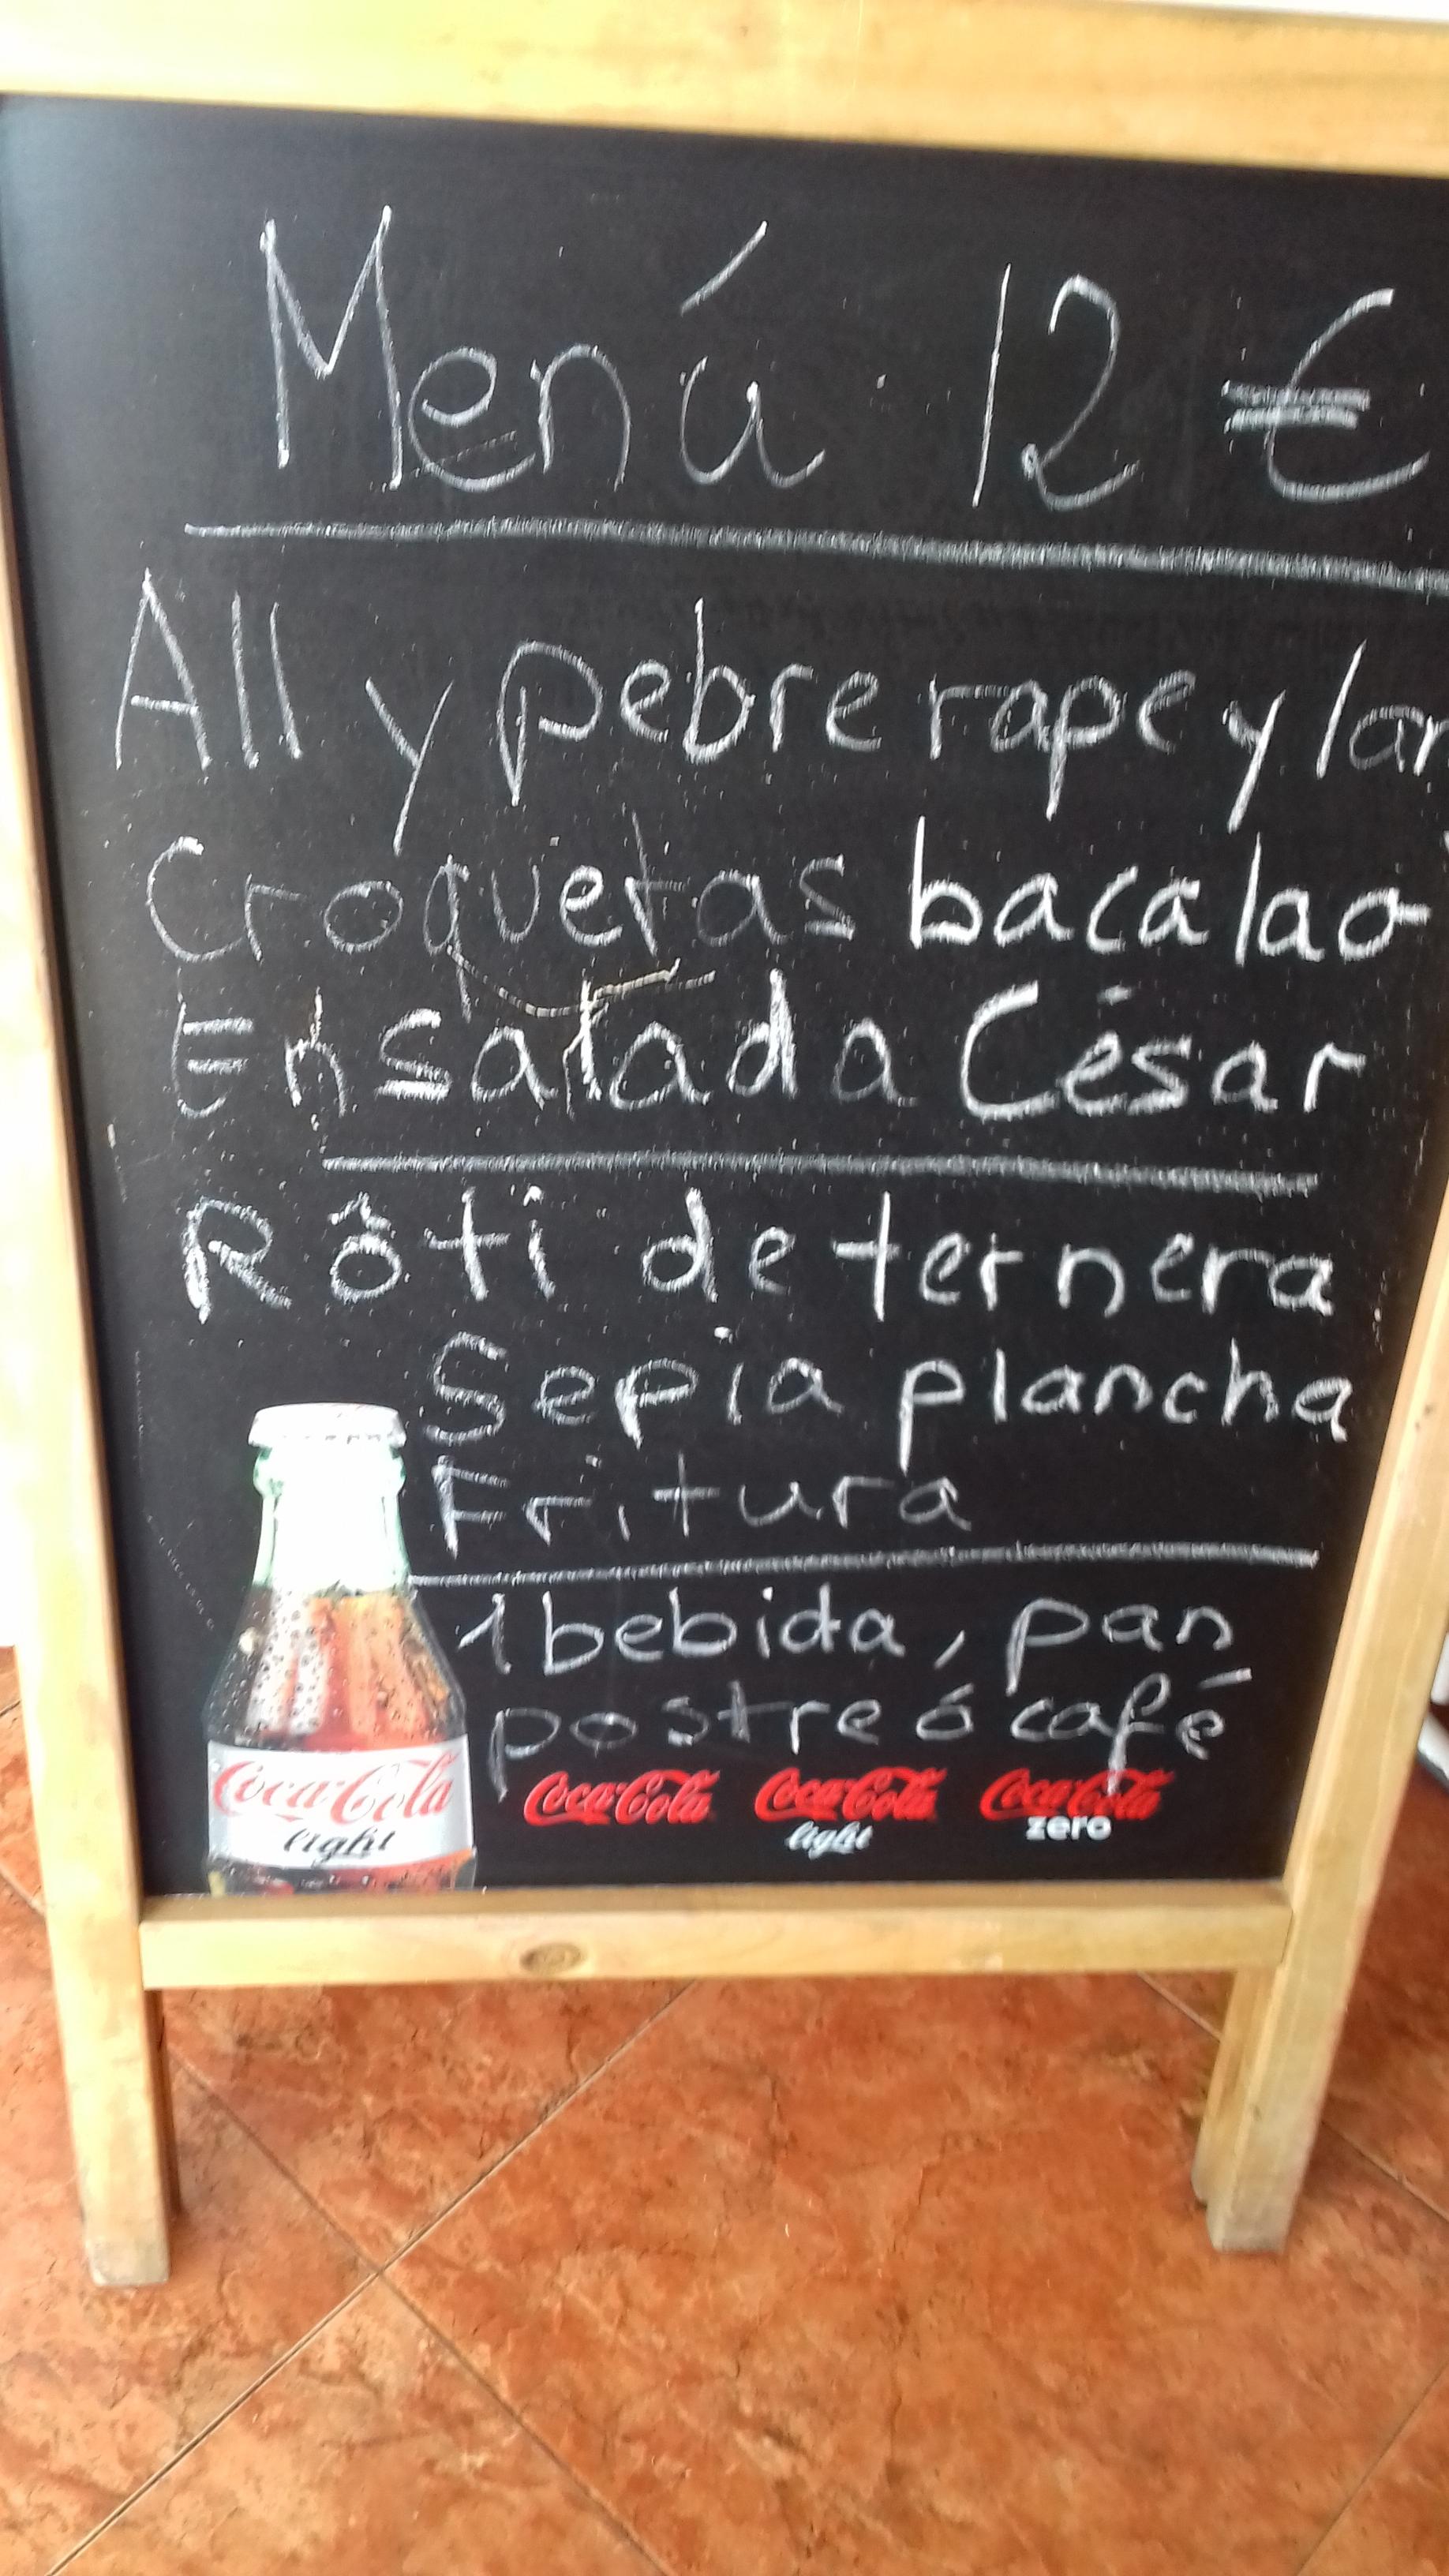 Menú 12 €
All y pebre rape y lan
Croquetas bacalao
Ensalada César
Rôti de ternera
Sepia plancha
Fritura
1 bebida, pan
postre ó café
Coca-Cola light
Coca-Cola Coca-Cola light Coca-Cola zero